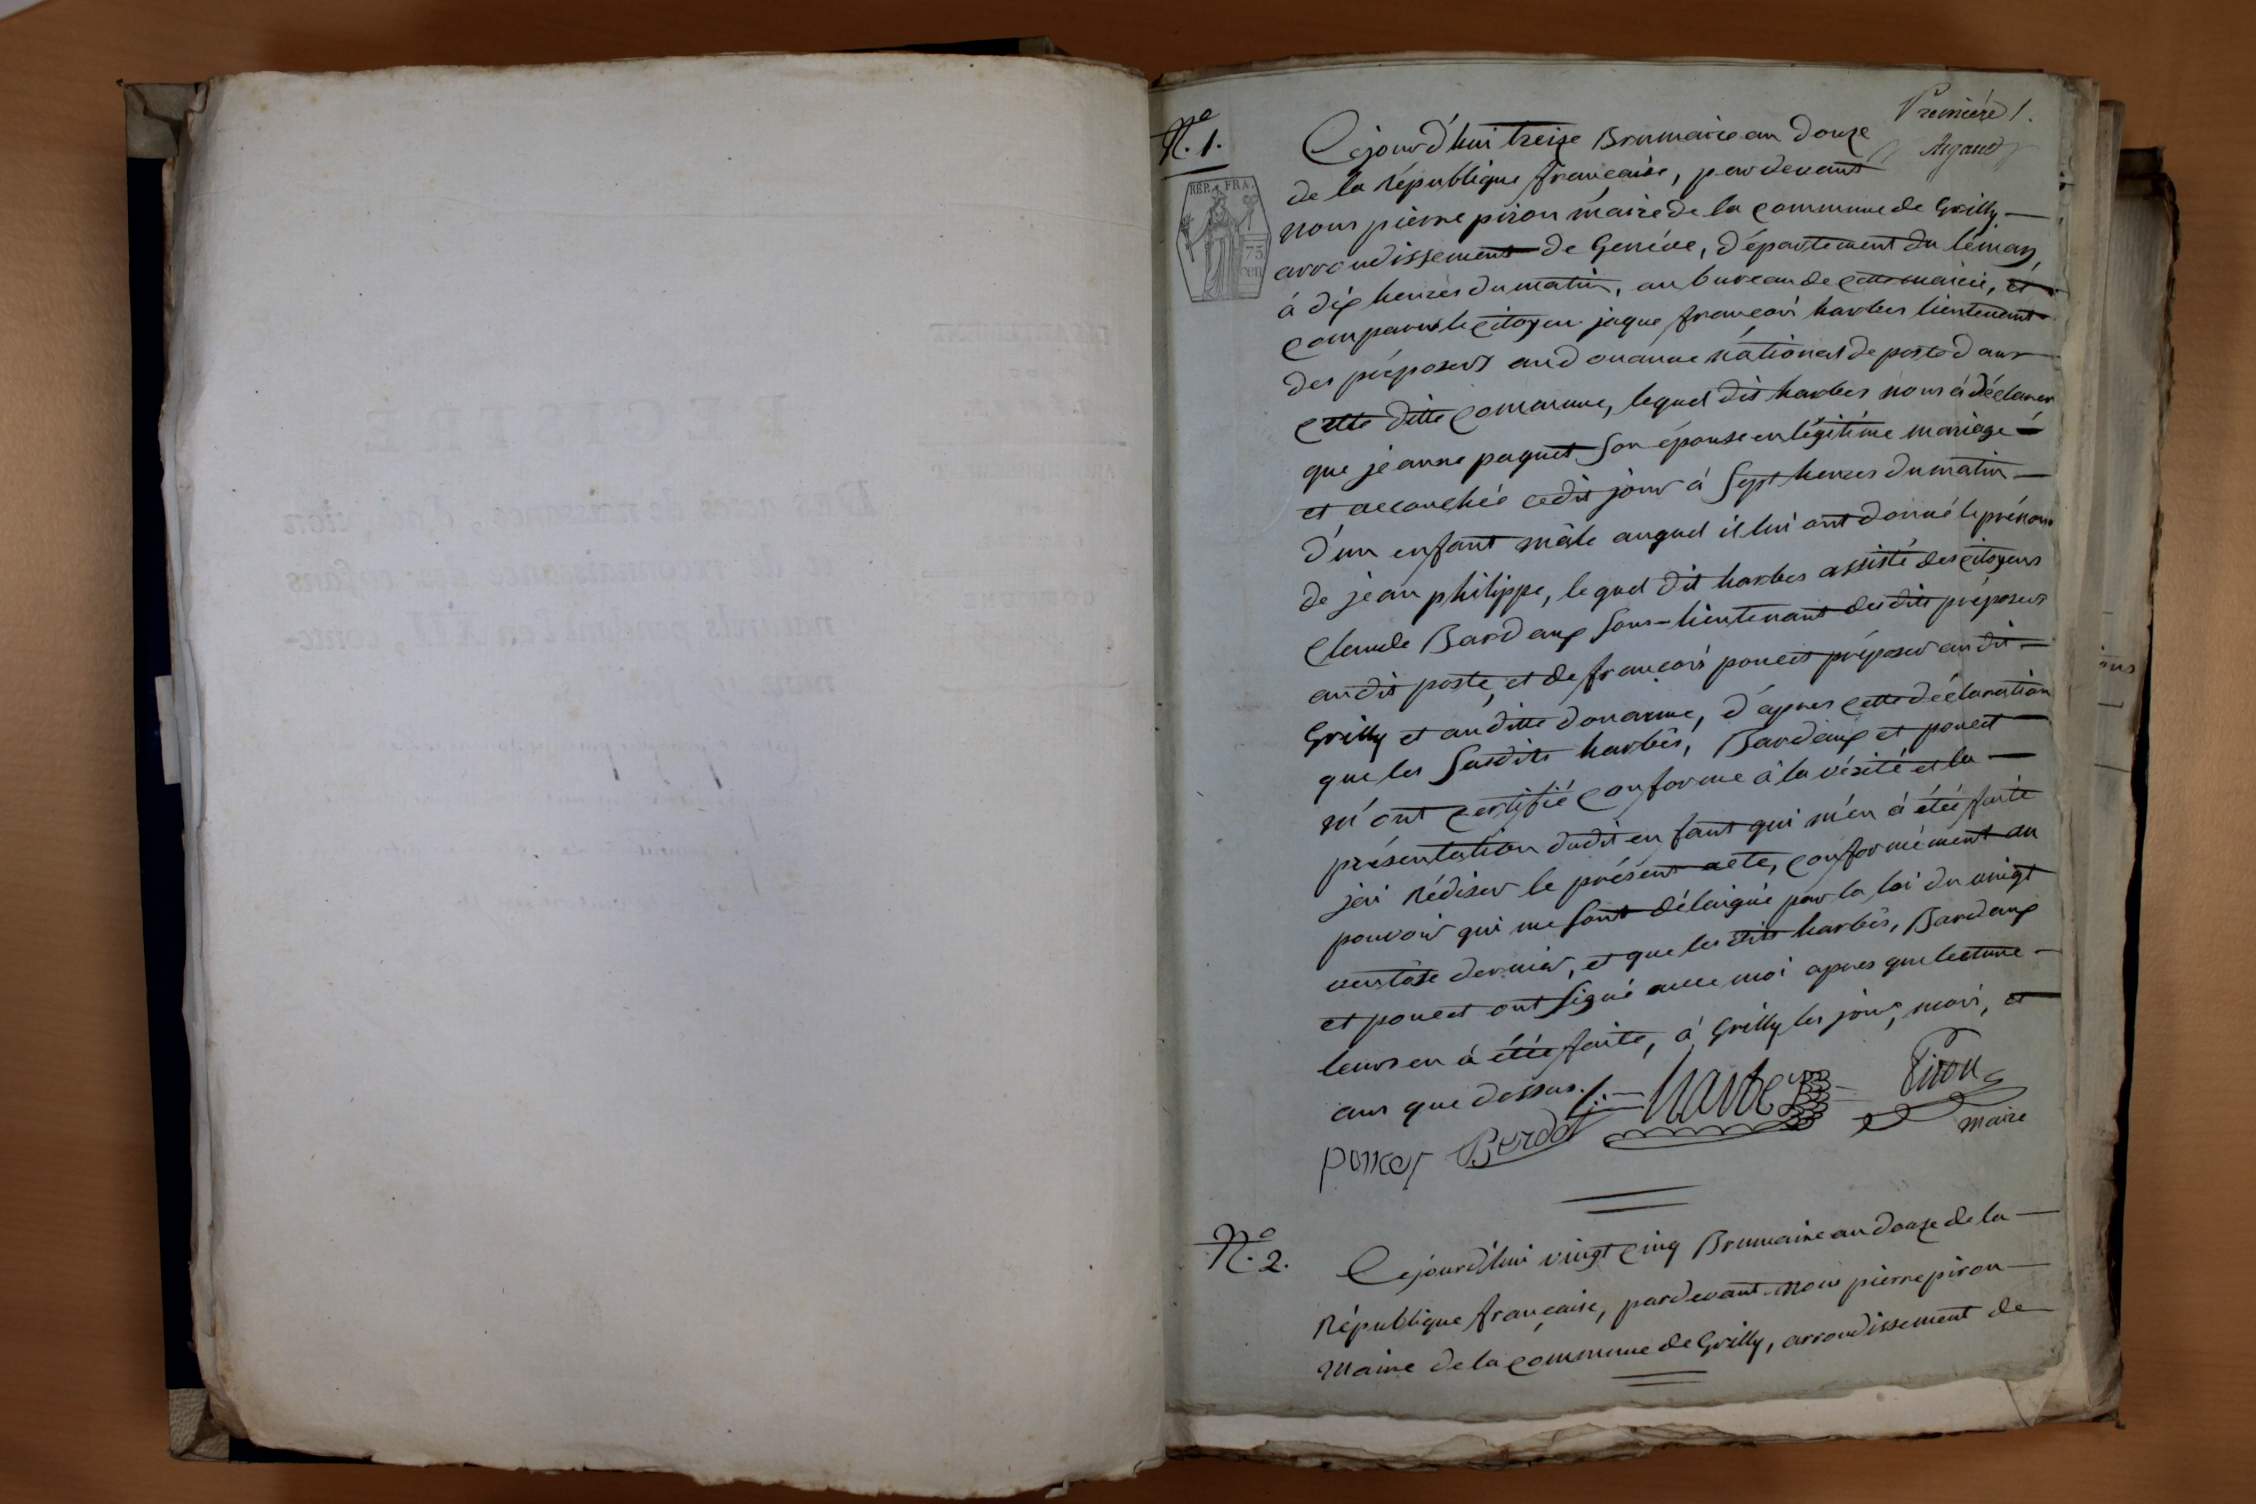 Première 1.
Argand
N.° 1.
RÉP. FRA.
75
cen
Cejourd'hui treize Brumaire an douze
de la république française, par devant
nous pierre piron maire de la commune de Grilly
arrondissement de Genève, département du léman,
à dix heures du matin, au bureau de cette mairie, et
comparus le citoyen jaque françois harbes lieutenant
des préposers au douanne national de poste dans
cette ditte commune, lequel dit harbes nous à déclarer
que jeanne paquet son épouse en légitime mariage
et accouchée cedit jour à sept heures du matin
d'un enfant mâle auquel il lui ont donné le prénom
de jean philippe, lequel dit harbes assisté des citoyens
Claude Bardaux sous-lieutenant desdits préposers
audit poste, et de françois poncet préposer audit
Grilly et auditte douanne, d'après cette déclaration
que les susdits harbès, Bardaux et poncet
m'ont certifié conforme à la vérité et la
présentation dudit enfant qui m'en à étée faite
jai rédiser le présent acte, conformément au
pouvoir qui me sont délaigué par la loi du vingt
ventôse dernier, et que les dits harbès, Bardaux
et poncet ont signé avec moi apres que lecture
leurs en à étée faite, à Grilly les jour, mois, et
ans que dessus./.
harbes
Piron
maire
poncet
Berdot
N.° 2.
Cejourd'hui vingt cinq Brumaire an douze de la
République française, pardevant nous pierre piron
Maire de la commune de Grilly, arrondissement de